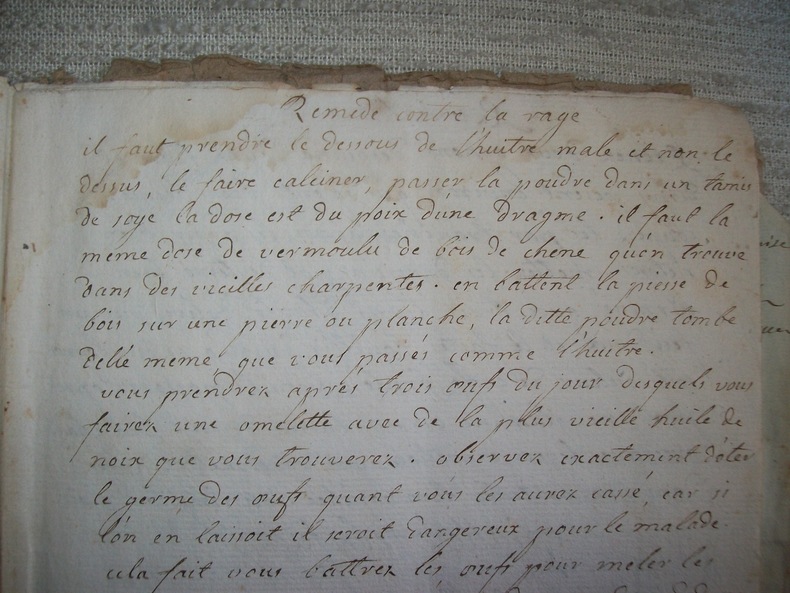 Remede contre la rage
il faut prendre le dessous de l'huitre male et non le
dessus, le faire calciner, passer la poudre dans un tamis
de soye la dose est du poix d'une dragme. il faut la
meme dose de vermoulu de bois de chene qu'on trouve
dans des vieilles charpentes. en battent la piesse de
bois sur une pierre ou planche, la ditte poudre tombe
d'elle meme que vous passés comme l'huitre.
vous prendrez aprés trois œufs du jour desquels vous
fairez une omelette avec de la plus vieille huile de
noix que vous trouverez. observez exactement d'oter
le germe des œufs quant vous les aurez cassé, car si
l'on en laissoit il seroit dangereux pour le malade.
cela fait vous battrez les œufs pour meler les